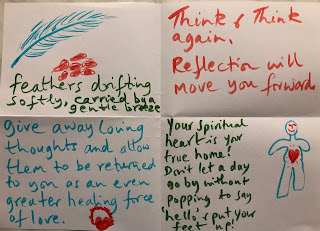 feathers drifting
softly, carried by a
gentle breeze
Think & Think
again.
Reflection will
move you forward
Give away loving
thoughts and allow
them to be returned
to you as an even
greater healing force
of love.
Your spiritual
heart is your
true home!
Don't let a day
go by without
popping to say
'hello' & put your
feet up!